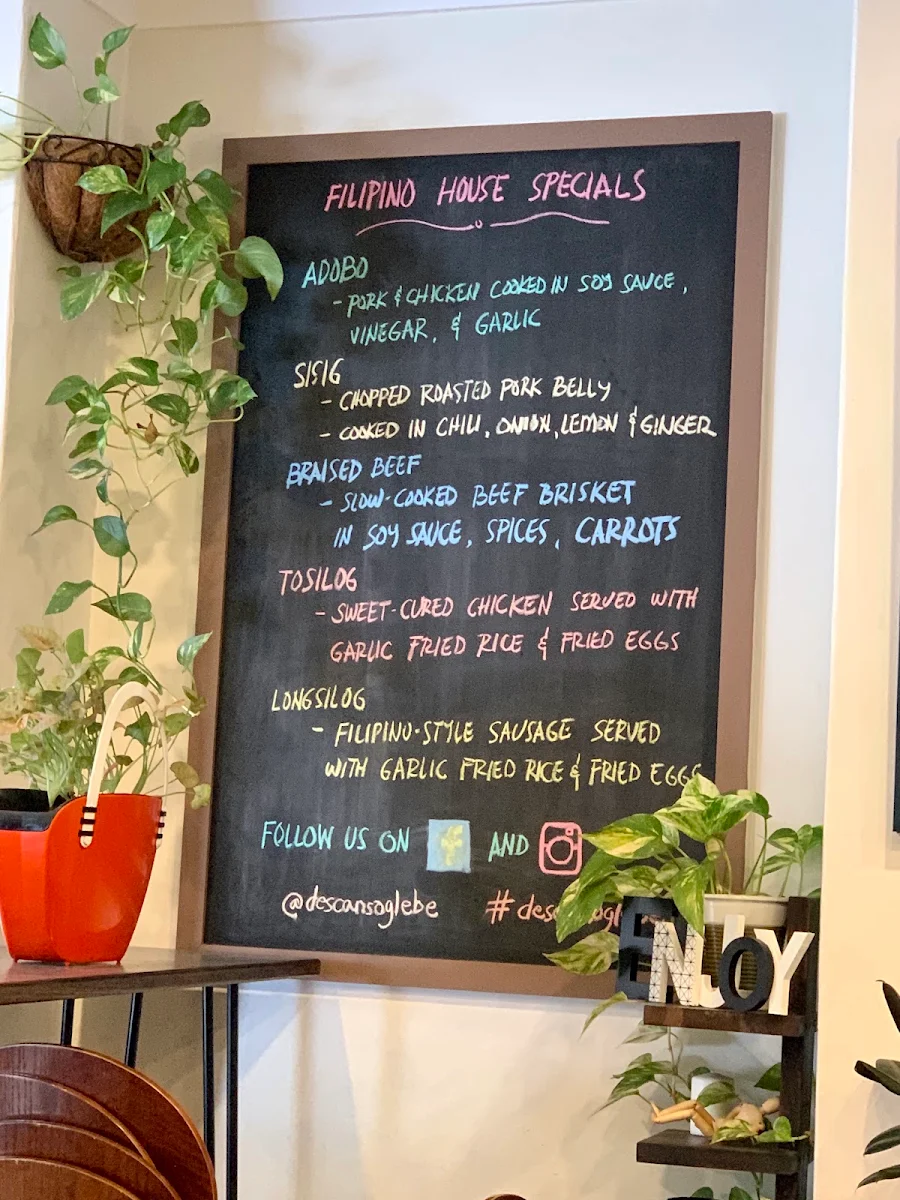 FILIPINO HOUSE SPECIALS
ADOBO
- PORK & CHICKEN COOKED IN SOY SAUCE,
VINEGAR, & GARLIC
SISIG
- CHOPPED ROASTED PORK BELLY
- COOKED IN CHILI, ONION, LEMON & GINGER
BRAISED BEEF
- SLOW-COOKED BEEF BRISKET
IN SOY SAUCE, SPICES, CARROTS
TOSILOG
- SWEET-CURED CHICKEN SERVED WITH
GARLIC FRIED RICE & FRIED EGGS
LONGSILOG
- FILIPINO-STYLE SAUSAGE SERVED
WITH GARLIC FRIED RICE & FRIED EGGS
FOLLOW US ON f AND
@descansoglebe
ENJOY